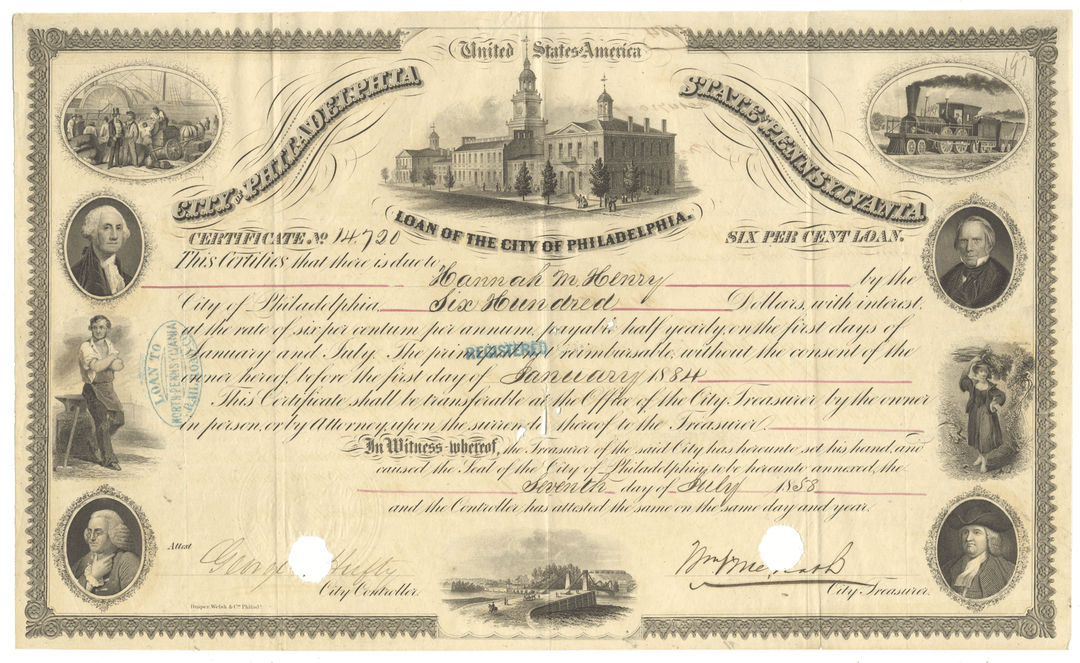 United States of America
CITY OF PHILADELPHIA
STATE OF PENNSYLVANIA
LOAN OF THE CITY OF PHILADELPHIA.
CERTIFICATE No 14,720
SIX PER CENT LOAN.
This Certifies that there is due to
Hannah M Henry by the
City of Philadelphia, Six Hundred Dollars, with interest,
at the rate of six per centum per annum, payable half yearly, on the first days of
January and July. The reimbursable, without the consent of the
owner hereof, before the first day of January 1884
REGISTERED
This Certificate shall be transferable at the Office of the City Treasurer by the owner
in person, or by Attorney, upon the surrender thereof to the Treasurer.
In Witness whereof, the Treasurer of the said City has hereunto set his hand, and
caused the Seal of the City of Philadelphia, to be hereunto annexed, the
Seventh day of July 1858
and the Controller has attested the same on the same day and year.
LOAN TO
NORTH PENNSYLVANIA
Attest
City Controller.
City Treasurer.
Draper, Welsh & Co. Philada.